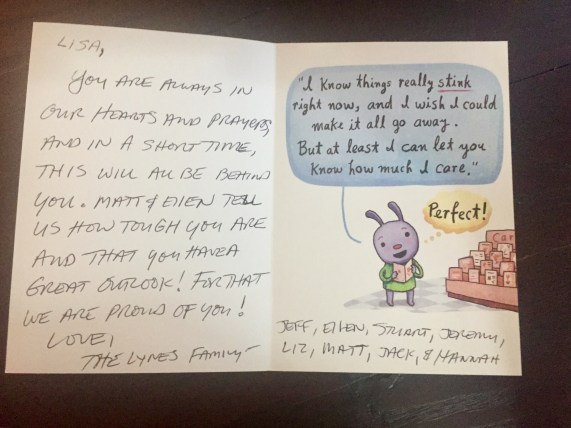 LISA,
YOU ARE ALWAYS IN
OUR HEARTS AND PRAYERS,
AND IN A SHORT TIME,
THIS WILL ALL BE BEHIND
YOU. MATT & EILEN TELL
US HOW TOUGH YOU ARE
AND THAT YOU HAVE A
GREAT OUTLOOK! FOR THAT
WE ARE PROUD OF YOU!
LOVE,
THE LYNES FAMILY-
"I know things really stink
right now, and I wish I could
make it all go away.
But at least I can let you
know how much I care."
Perfect!
Car
JEFF, EILEN, STUART, JEREMY,
LIZ, MATT, JACK, & HANNAH